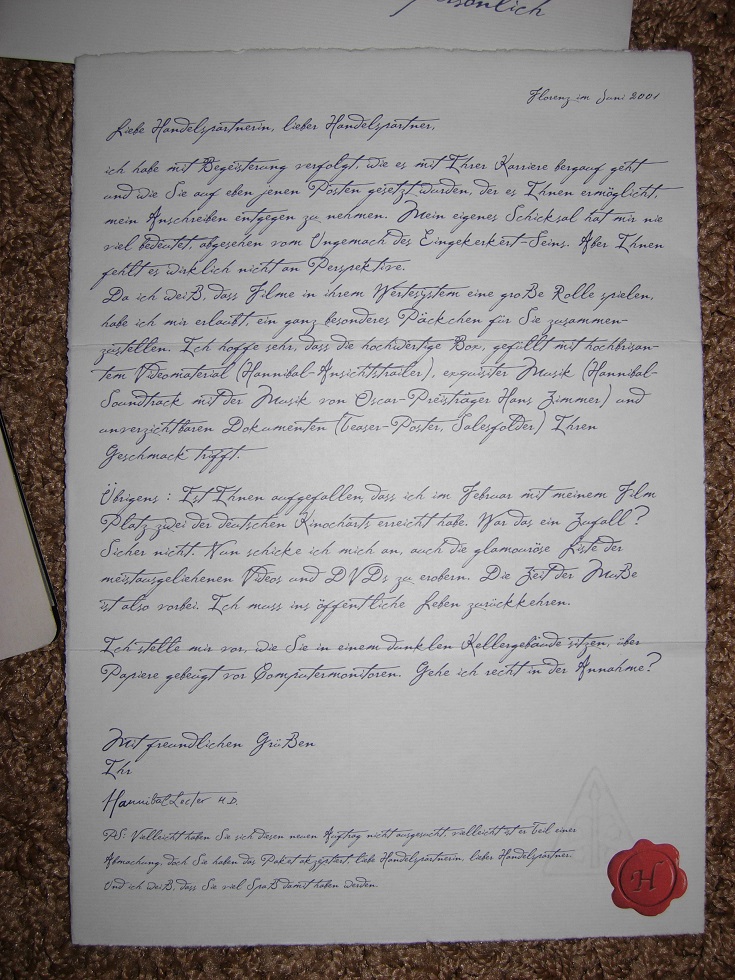 persönlich
Florenz im Juni 2001
Liebe Handelspartnerin, lieber Handelspartner,
ich habe mit Begeisterung verfolgt, wie es mit Ihrer Karriere bergauf geht
und wie Sie auf eben jenen Posten gesetzt wurden, der es Ihnen ermöglicht,
mein Anschreiben entgegen zu nehmen. Mein eigenes Schicksal hat mir nie
viel bedeutet, abgesehen vom Ungemach des Eingekerkert-Seins. Aber Ihnen
fehlt es wirklich nicht an Perspektive.
Da ich weiß, dass Filme in ihrem Wertesystem eine große Rolle spielen,
habe ich mir erlaubt, ein ganz besonderes Päckchen für Sie zusammen-
zustellen. Ich hoffe sehr, dass die hochwertige Box, gefüllt mit hochbrisan-
tem Videomaterial (Hannibal-Ansichtstrailer), exquisiter Musik (Hannibal-
Soundtrack mit der Musik von Oscar-Preisträger Hans Zimmer) und
unverzichtbaren Dokumenten (Teaser-Poster, Salesfolder) Ihren
Geschmack trifft.
Übrigens : Ist Ihnen aufgefallen, dass ich im Februar mit meinem Film
Platz zwei der deutschen Kinocharts erreicht habe. War das ein Zufall?
Sicher nicht. Nun schicke ich mich an, auch die glamouröse Liste der
meistausgeliehenen Videos und DVDs zu erobern. Die Zeit der Muße
ist also vorbei. Ich muss ins öffentliche Leben zurückkehren.
Ich stelle mir vor, wie Sie in einem dunklen Kellergebäude sitzen, über
Papiere gebeugt vor Computermonitoren. Gehe ich recht in der Annahme?
Mit freundlichen Grüßen
Ihr
Hannibal Lecter M.D.
PS: Vielleicht haben Sie sich diesen neuen Auftrag nicht ausgesucht, vielleicht ist er Teil einer
Abmachung, doch Sie haben das Paket akzeptiert, liebe Handelspartnerin, lieber Handelspartner.
Und ich weiß, dass Sie viel Spaß damit haben werden.
H